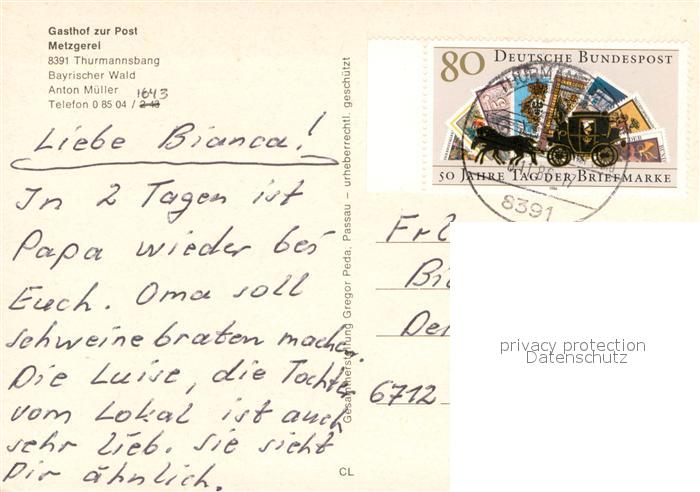 Gasthof zur Post
Metzgerei
8391 Thurmannsbang
Bayrischer Wald
Anton Müller 1643
Telefon 0 85 04 / 2 43
Liebe Bianca!
In 2 Tagen ist
Papa wieder bei
Euch. Oma soll
schweinebraten machen.
Die Luise, die Tochter
vom Lokal ist auch
sehr lieb. Sie sieht
Dir ähnlich.
Gesamtherstellung Gregor Peda, Passau – urheberrechtl. geschützt
CL
80 DEUTSCHE BUNDESPOST
50 JAHRE TAG DER BRIEFMARKE
8391
Frl
Bi
De
6712
privacy protection
Datenschutz